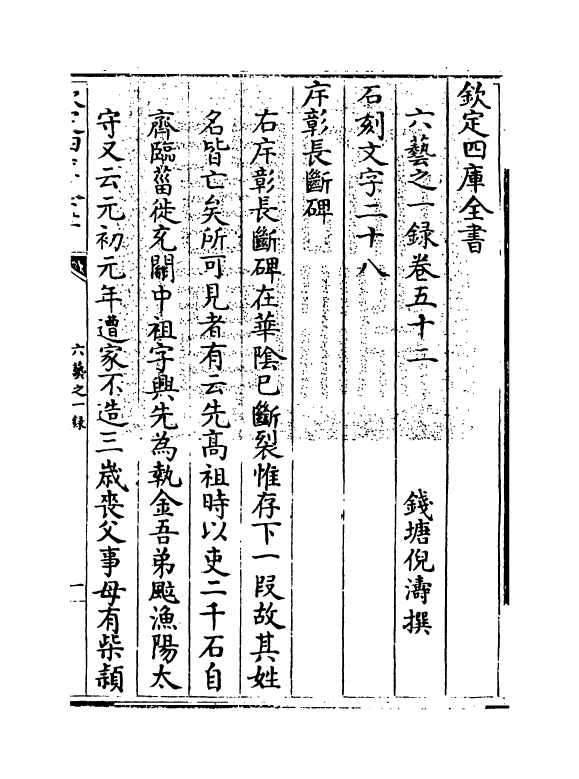 欽定四庫全書
六藝之一録卷五十二
錢塘倪濤撰
石刻文字二十八
斥彰長斷碑
右斥彰長斷碑在華陰已斷裂惟存下一段故其姓
名皆亡矣所可見者有云先髙祖時以吏二千石自
齊臨菑徙充關中祖字興先為執金吾弟颭漁陽太
守又云元初元年遭家不造三歳喪父事母有柴穎
六藝之一録
一